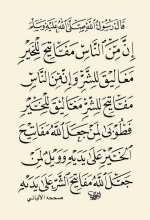 قال رسول الله صلى الله عليه وسلم
إن من الناس مفاتيح للخير
مغاليق للشر وإن من الناس
مفاتيح للشر مغاليق للخير
فطوبى لمن جعل الله مفاتيح
الخير على يديه وويل لمن
جعل الله مفاتيح الشر على يديه
صححه الألباني